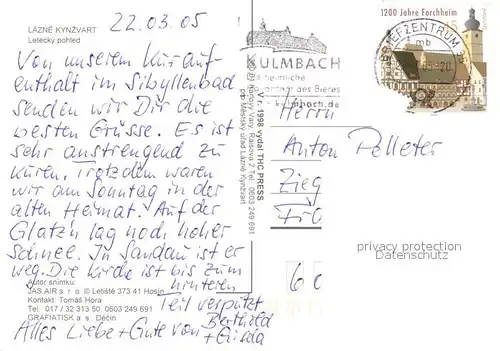 LÁZNĚ KYNŽVART
Letecký pohled
22.03.05
Von unserem Kurauf-
enthalt im Sibyllenbad
senden wir Dir die
besten Grüsse. Es ist
sehr anstrengend zu
kuren. Trotzdem waren
wir am Sonntag in der
alten Heimat. Auf der
Glatzn lag noch hoher
Schnee. In Sandau ist er
weg. Die Kirche ist bis zum
hinteren
Teil verputzt
Alles Liebe + Gute von Berthold
+ Gisela
Autor snímku:
JAS AIR s r. o. © Letiště 373 41 Hosín
Kontakt: Tomáš Hora
Tel. 017 / 32 313 50. 0603 249 691
GRAFIATISK a s. Děčín
V r. 1998 vydal THC PRESS
Tel. 0603 249 691
pro Městský úřad Lázně Kynžvart
KULMBACH
heimliche
des Bieres
kulmbach.de
1200 Jahre Forchheim
BRIEFZENTRUM
mb
Herrn
Anton Pelleter
Zieg
privacy protection
Datenschutz